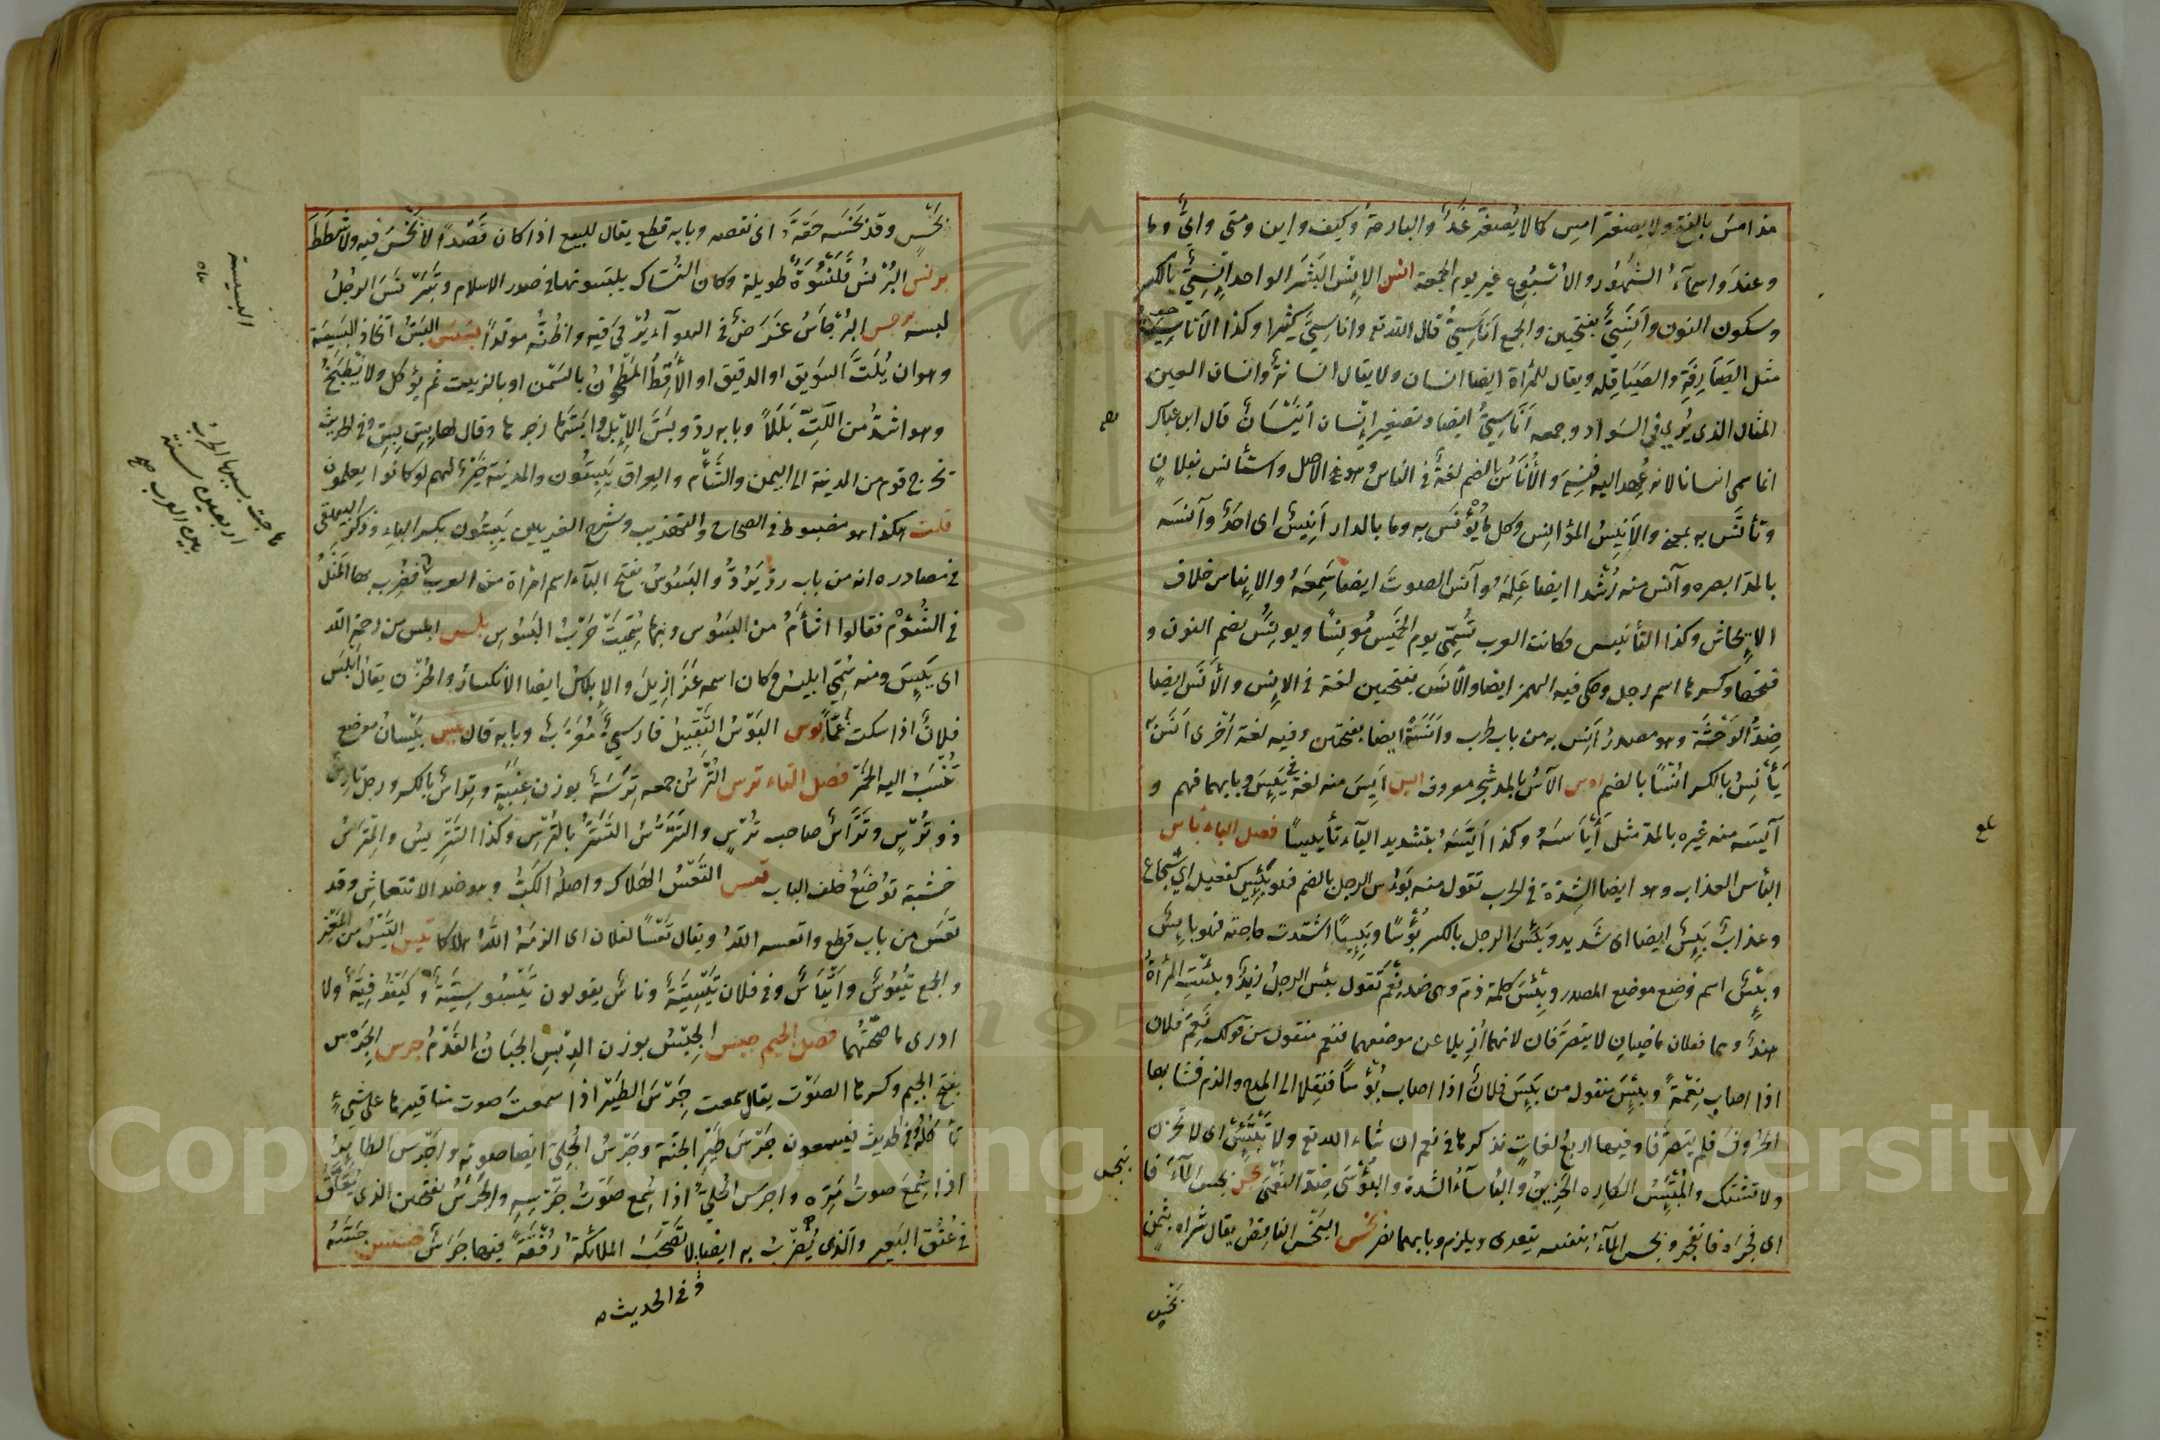 مذ امسَ بالفتح ولا يصغر امس كما لا يُصغّر غَدٌ والبارحةُ وكيفَ واين ومتى وايٌّ وما
وعندَ واسمآءُ الشهُور والاُسْبُوع غير يوم الجمعة انس الاِنْسُ البَشَر الواحد اِنْسِيٌّ بالكسر
وسكون النون وأنَسِيٌّ بفتحتين والجمع اَنَاسِيُّ قال الله تع واناسِيَّ كثيرا وكذا الاَناسِيَة
مثل الصَيَارِفَةِ والصَيَاقِلة ويقال للمرأة ايضا انسان ولا يقال انسانةٌ وانسان العين
المثال الذي يُرى في السَواد وجمعه اَنَاسِيُّ ايضا وتصغير اِنْسان اُنَيْسَانٌ قال ابن عباس
انما سمى انسانا لانه عُهد اليه فنسِيَ والأُنَاسُ بالضم لغةٌ في الناس وهو الاصل واستأنس بفلانٍ
وتأنَّسَ به بمعنى والاَنِيسُ المؤانِس وكل ما يُؤْنَس به وما بالدار اَنِيسٌ اى احَدٌ وآنَسَه
بالمد ابصره وآنس منه رُشْدا ايضا عَلِمَهُ وآنس الصوتَ ايضا سَمِعَهُ والايناس خلاف
الاِيحاش وكذا التأنيس وكانت العرب تُسَمّى يوم الخَمِيس مُونِسًا ويونُس بضم النون و
فتحها وكسرها اسم رجل وحكى فيه الهمز ايضا والأنَس بفتحتين لغة في الاِنِس والأَنَس ايضا
ضِدُّ الوَحْشَة وهو مصدرُ اَنِسَ به من باب طرب واَنَسَةً ايضا بفتحتين وفيه لغة اُخْرى اَنَسَ به
يَأنِسُ بالكسر اُنْسًا بالضم اوس الآسُ بالمد شجر معروف ايس اَيِسَ منه لغةٌ في يَئِسَ وبابهما فهم و
آيسَه منه غيره بالمد مثل اَيْأَسَهُ وكذا اَيَّسَهُ بتشديد اليآء تأييسًا فصل الباء باس
البأس العذاب وهو ايضا الشِدّة في الحرب تقول منه بَؤُس الرجل بالضم فهو بَئِيس كفعيل اى شُجاع
وعذابٌ بَئِيسٌ ايضا اى شديد وبَئِسَ الرجل بالكسر بُؤْسًا وبَئِيسًا اشتدت حاجته فهو بائِسٌ
وبِئْسٌ اسم وُضِع موضع المصدر وبِئْسَ كلمة ذم وهى ضد نِعْمَ تقول بئس الرجلُ زيدٌ وبئست المرأةُ
هندٌ وهما فعلان ماضيان لا يتصرّفان لانهما اُزِيلا عن موضعهما فنعم منقول من قولك نَعِمَ فلان
اذا اصاب نِعْمَةً وبِئْسَ منقول من بَئِسَ فلانٌ اذا اصاب بُؤْسًا فنُقِلا الى المدح والذم فشابها
الحُروفَ فلم يتصرَّفا وفيها اربعُ لغاتٍ نذكرها في نعم ان شاء الله تع ولا تَبْتَئِسْ اى لا تحْزن
ولا تشتك والمُبْتَئِسُ الكاره الحَزِينُ والبأسآءُ الشدة والبُؤْسى ضِدّ النُعْمَى بجس بجس المآءَ فا
اى فجّره فانفجر وبجس المآءُ بنفسه يتعدى ويلزم وبابهما نصر بخس البَخْس الناقصُ يقال شراه بثمنٍ
بَخْسٍ
نبجس
بَخْسٍ وقد بَخَسَه حَقَّهُ اى نقصه وبابه قطع يقال للبيع اذا كان قَصْدًا لا بَخْسَ فيه ولا شَطَطَ
برنس البُرْنُسُ قَلَنْسُوَةٌ طويلة وكان النُسّاك يلبسونها في صدر الاسلام وتَبَرْنَسَ الرجلُ
لبسه برجس البُرْجَاسُ غَرَضٌ في الهوآء يُرْمَى فيه واظنُّه مولّدًا بسس البَسُّ اتخاذ البَسِيسَة
وهو ان يُلَتَّ السَويق او الدقيق او الأَقِطُ المَطْحُونُ بالسَمْن او بالزيت ثم يؤكل ولا يُطْبَخُ
وهو اشَدُّ من اللَتِّ بَلَلًا وبابه ردّ وبَسَّ الاِبِلَ وابَسَّها زجرها وقال لها بِسْ بِسْ وفي الحديث
تخرج قوم من المدينة الى اليمن والشَّام والعراق يَبِسُّون والمدينة خيرٌ لهم لو كانوا يعلمون
قلت هكذا هو مضبوط في الصحاح والتهذيب وشرح الغريبين يَبِسُّون بكسر الباء وذكر البيهقى
في مصادره انه من باب ردّ يَرُدُّ والبَسُوسُ بفتح الباء اسم امرأة من العرب فضُرِب بها المَثَلُ
في الشُؤْم فقالوا اشأَمُ من البَسُوس وبها سُمّيتْ حَرْبُ البَسُوسِ بلس ابلس من رحمة الله
اى يَئِسَ ومنه سُمِّيَ ابليس وكان اسمه عَزَازيلَ والابلاسُ ايضا الانكسارُ والحُزْن يقال اَبْلَسَ
فلانٌ اذا سكت غَمًّا بوس البَوْسُ التَقْبِيلُ فارسىٌّ مُعَرَّبٌ وبابه قال بيس بَيْسانُ موضع
تُنْسَبُ اليه الخمرُ فصل التاء ترس التُرْسُ جمعه تِرَسَةٌ بوزن عِنَبَةٍ وتِراسٌ بالكسر ورجل تارِسٌ
ذو تُرْسٍ وتَرّاسٌ صاحب تُرْسٍ والتَتَرُّسُ التَسَتُّرُ بالتُرْسِ وكذا التَتْرِيسُ والمِتْرَسُ
خشبة تُوْضَعُ خلف الباب تعس التَعْسُ الهلاك واصلُه الكَبُّ وهو ضد الانتعاشِ وقد
تعَسَ من باب قطع واتعسه اللهُ ويقال تَعْسًا لفلان اى الزمَهُ اللهُ هلاكا تيس التَيْسُ من المَعْزِ
والجمع تُيُوسٌ واَتْيَاسٌ وفي فلان تَيْسِيَّةٌ وناسٌ يقولون تَيْسُوسِيَّةٌ وكَيْفُوفِيَّةٌ ولا
ادرى ما صحّتُهُما فصل الجيم جبس الجِبْسُ بوزن الدِبْس الجَبَانُ الفَدْمُ جرس الجَرْس
بفتح الجيم وكسرها الصَوْت يقال سمعت جَرْسَ الطَيْر اذا سمعت صَوت مناقيرها على شَيْءٍ
تأكلُه وفي الحديث فيسمعون جَرْسَ طَيْرِ الجنّة وجَرْسُ الحُلِيّ ايضا صوته واَجْرَس الطائرُ
اذا سُمِعَ صوتُ مَرِّه واجرس الحَلْيُ اذا سُمِع صَوْتُ جَرْسِهِ والجَرَسُ بفتحتين الذى يُعَلَّقُ
في عُنُقِ البَعير والّذى يُضرَبُ به ايضا لا تَصْحَبُ الملائكةُ رُفْقَةً فيها جَرَسٌ جسس جَسَّهُ
وفي الحديث ص
البسيسة
ماه
هاجت بسببها الحرب
اربعين سنة
بين العرب صح